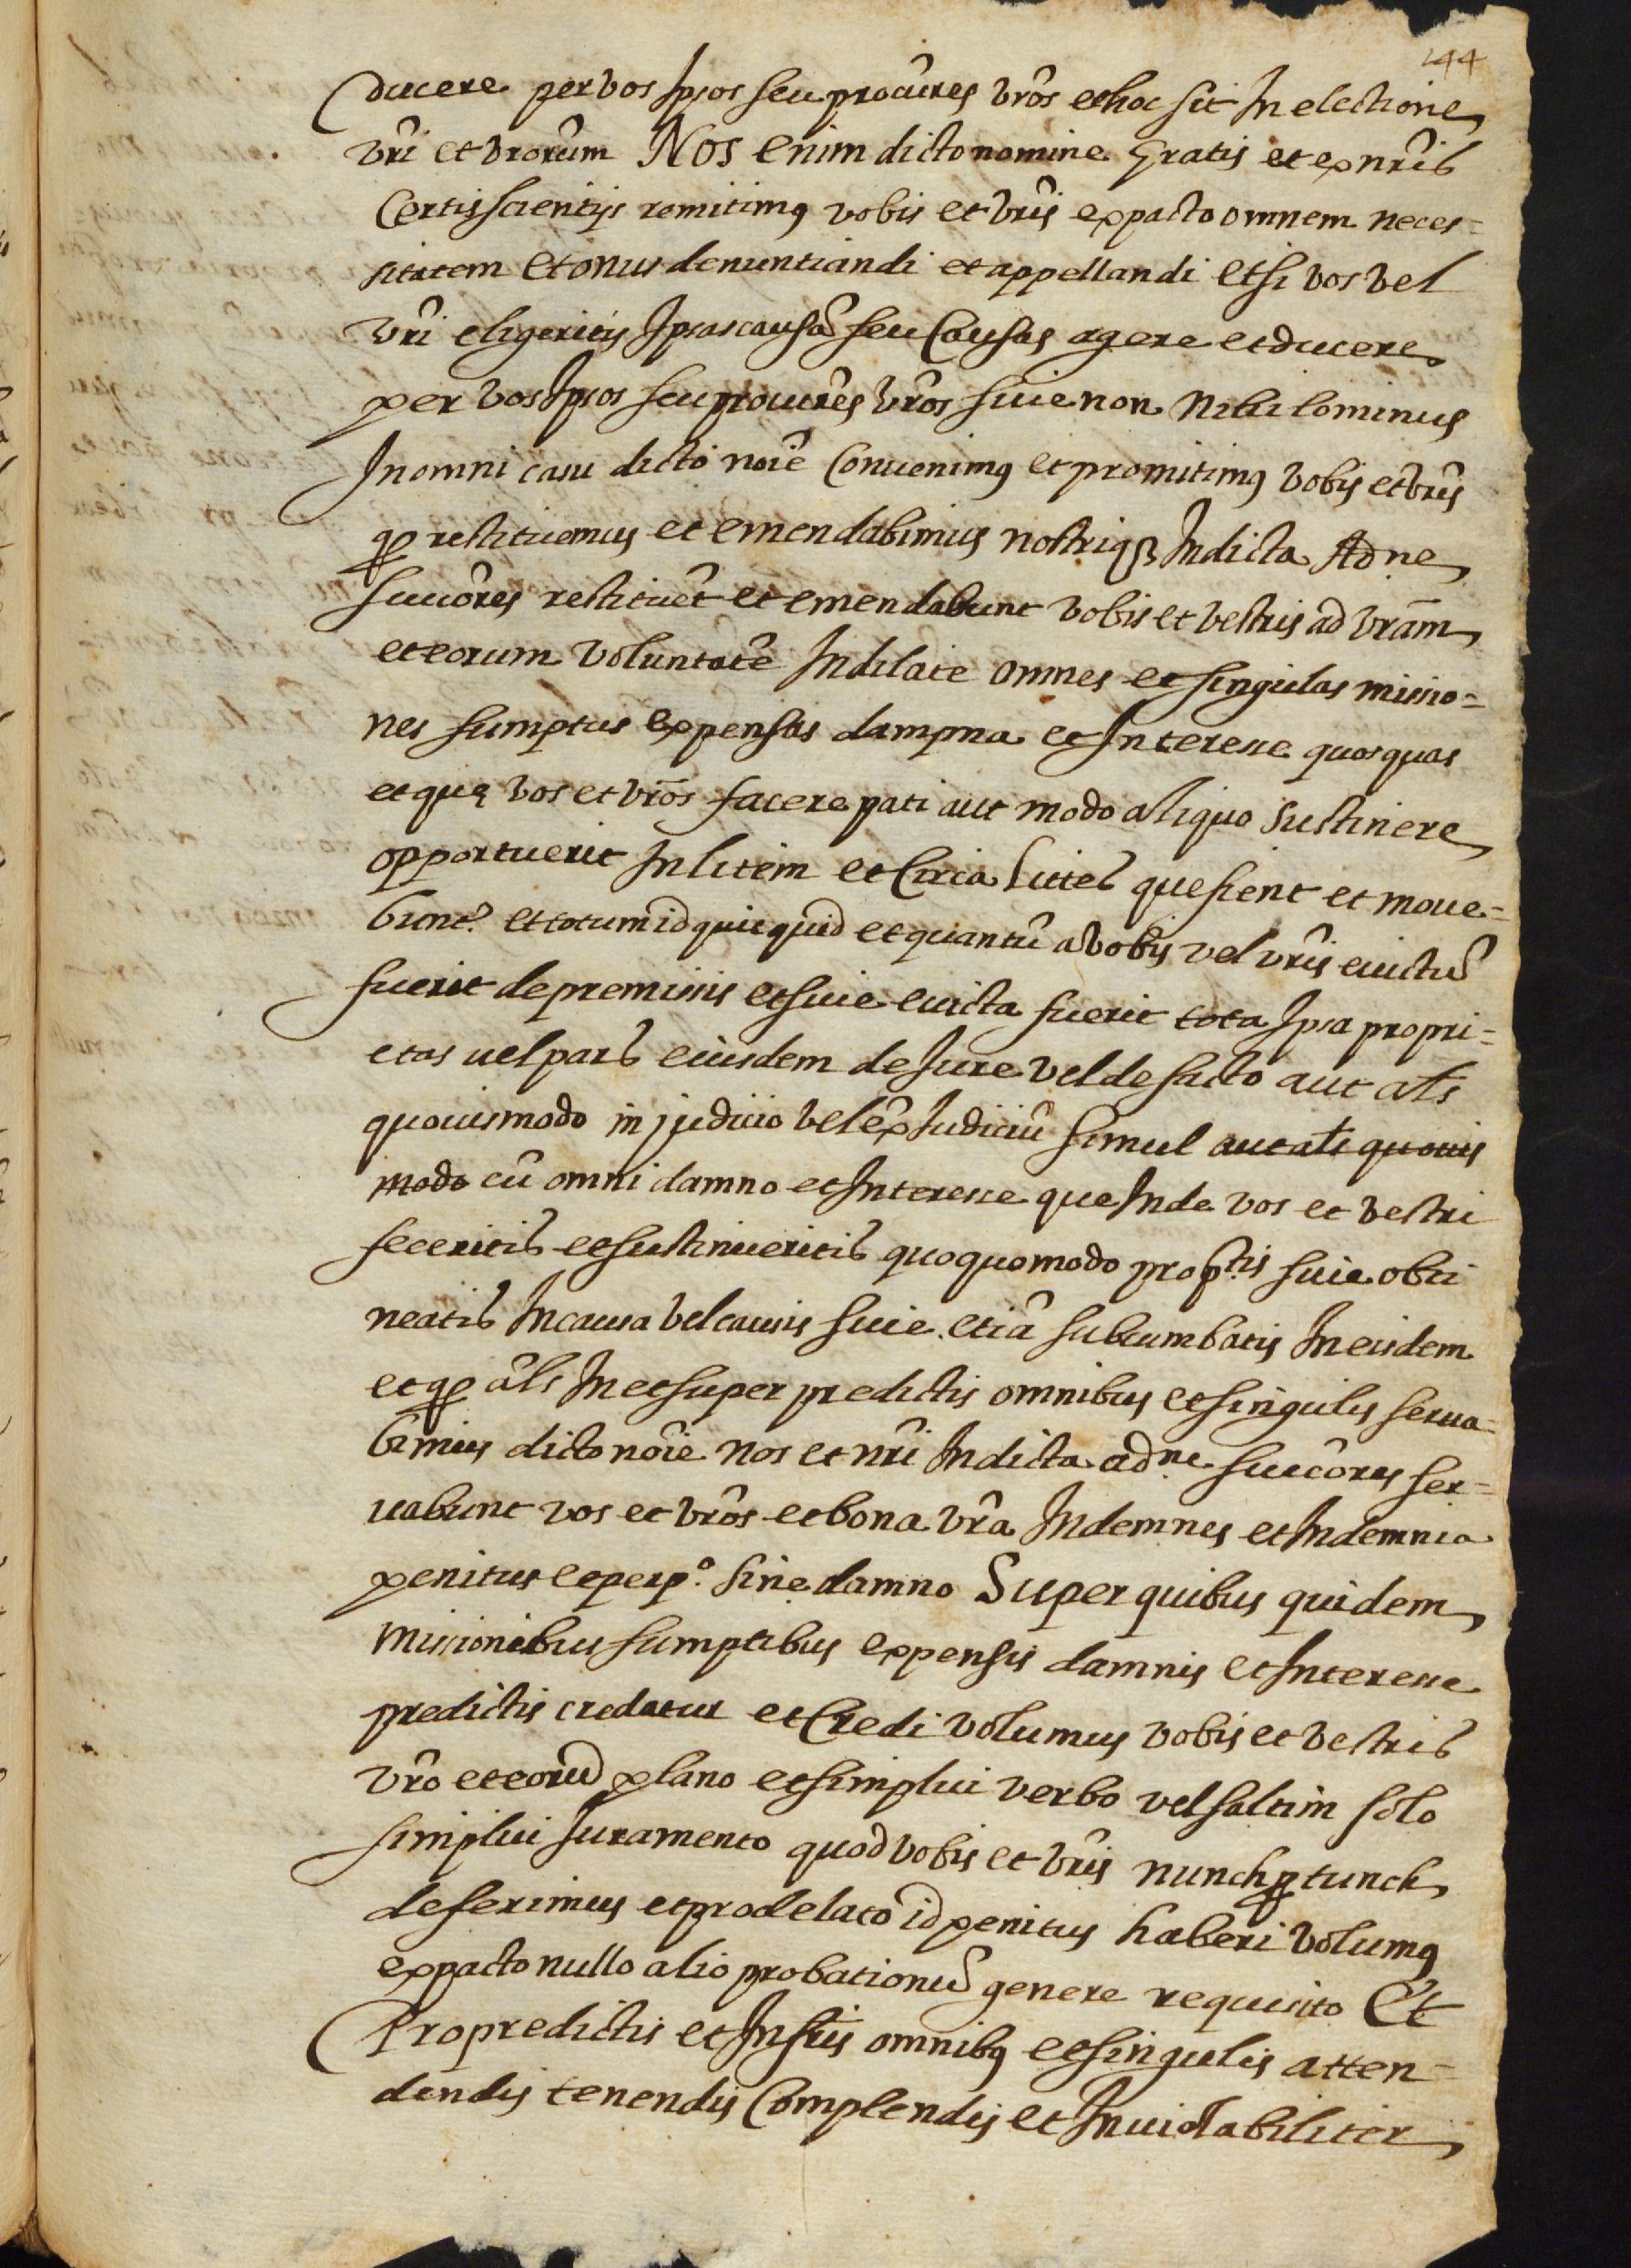 144
ducere per vos Ipsos seu procu͂res vr͂os et hoc sit In electione
vr͂i et vrorum͂ Nos enim dicto nomine Gratis et ex nr͂is
Certis scientijs remitimꝰ vobis et vr͂is ex pacto omnem neces=
sitatem et onus denuntiandi et appellandi Et si vos vel
vr͂i eligeritis Ipsas causã seu Causas agere et ducere
per vos Ipsos seu procur͂es vr͂os siue non Nihilominus
In omni casu dicto noi͂e Conuenimꝰ et promitimꝰ vobis et vr͂is
qꝫ restituemus et emendabimus nostriqꝫ In dicta Adne
succo͂res restitue͂t et emendabunt vobis et vestris ad vram͂
et eorum voluntate͂ Indilate omnes et singulas missio=
nes sumptus expensas dampna et Interesse quos quas
et que vos et vr͂os facere pati aut modo aliquo sustinere
opportuerit In litem et Circa Littes que fient et moue=
bunt.̉ et totum id quicquid et quantũ a vobis vel vr͂is euictũ
fuerit de premissis et siue euicta fuerit tota Ipsa propri=
etas uel pars eiusdem de Iure vel de facto aut als͂
quouismodo in judicio vel ex͂ Iudiciũ simul aut als͂ quouis
modo cũ omni damno et Interesse que Inde vos et vestri
feceritis et sustinueritis quoquomodo prop͂tis siue obti
neatis In causa vel causis siue etiã subcumbatis In eisdem
et qꝫ a͂ls In et super predictis omnibus et singulis serua=
bimus dicto noi͂e nos et nr͂i In dicta adne succo͂res ser=
uabunt vos et vr͂os et bona vr͂a Indemnes et Indemnia
penitus et perpº. sine damno Super quibus quidem
missionibus sumptibus expensis damnis et Interesse
predictis credatur et Credi volumus vobis et vestris
vr͂o et eorũ plano et simplici verbo vel saltim solo
simplici Iuramento quod vobis et vr͂is nunch ꝓ tunch
deferimus et pro delato id penitus haberi volumꝰ
ex pacto nullo alio probationũ genere requisito Et
Pro predictis et Infr͂is omnibꝰ et singulis atten=
dendis tenendis Complendis et Inuiolabiliter